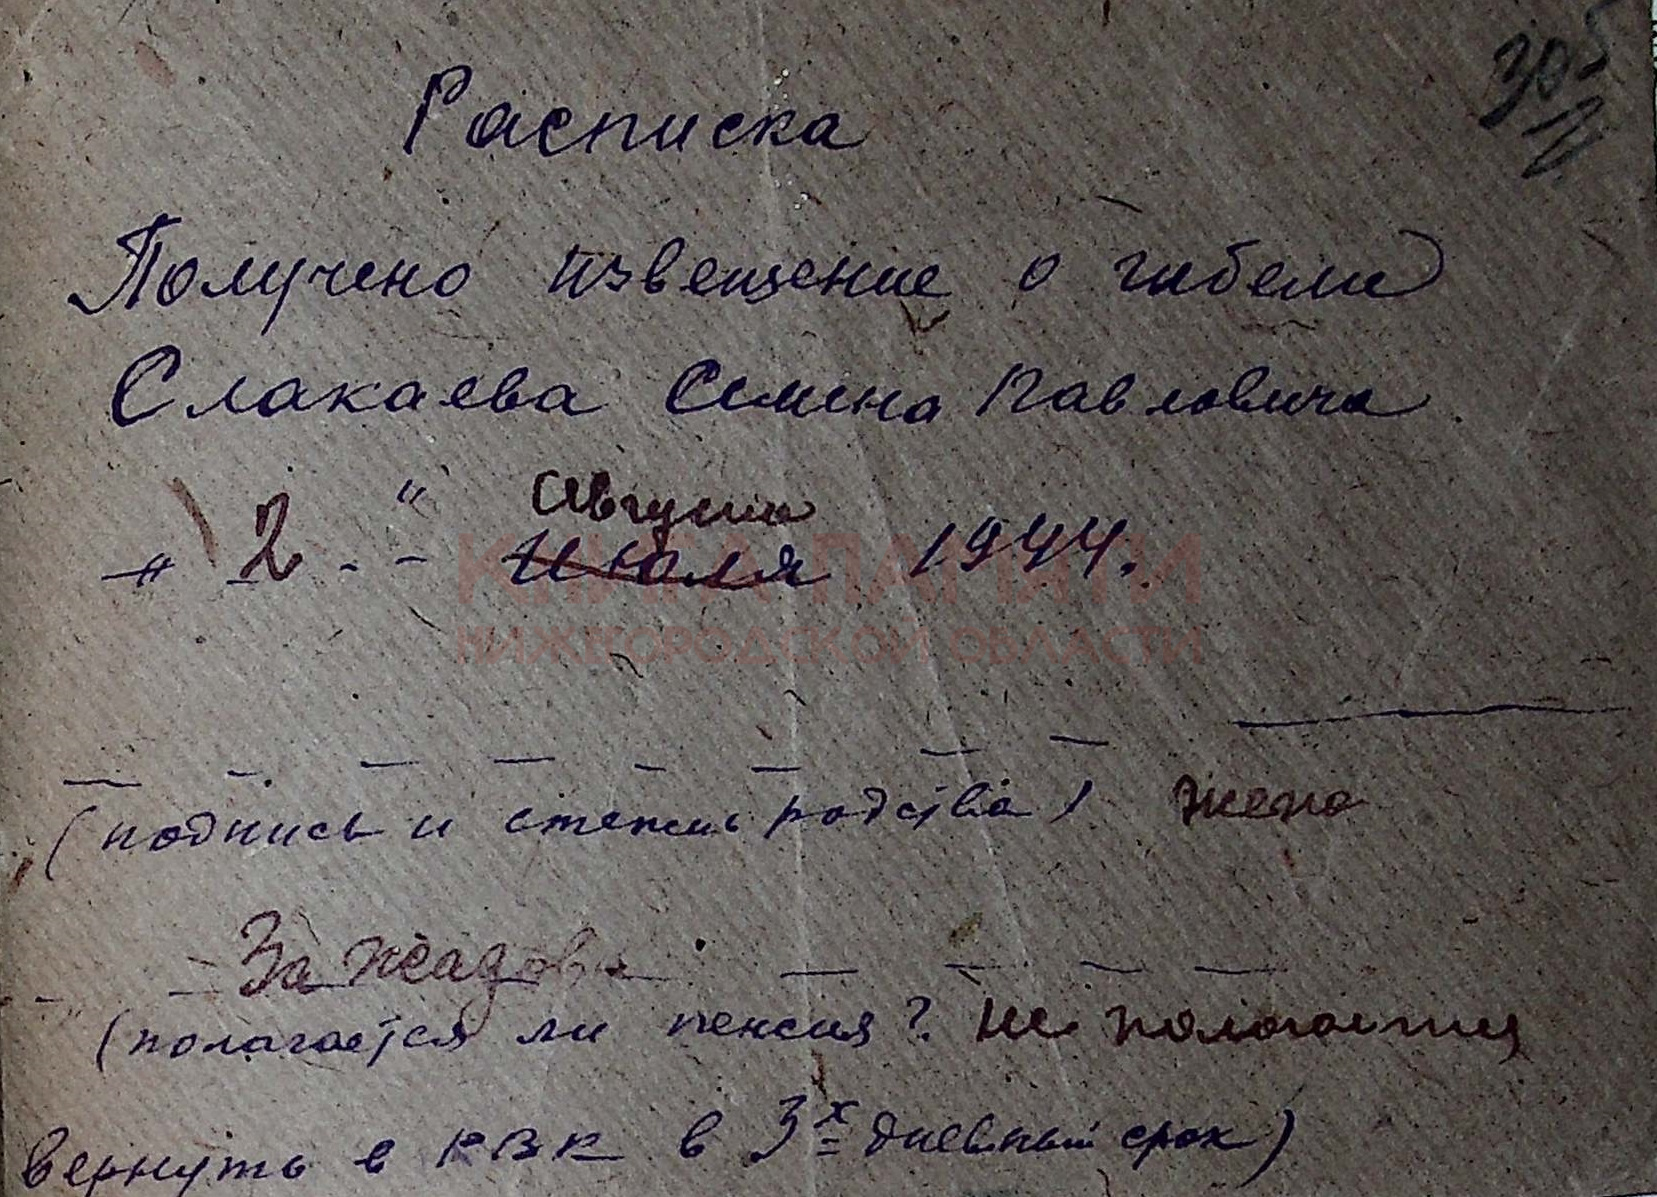 305
Расписка
Получено извещение о гибели
Слакаева Семена Павловича
Августа
" 2 " Июля 1944.
КНИГА ПАМЯТИ
НИЖЕГОРОДСКОЙ ОБЛАСТИ
(подпись и степень родства) жена
За
(полагается ли пенсия? не пологается
вернуть в РВК в 3х дневный срок)